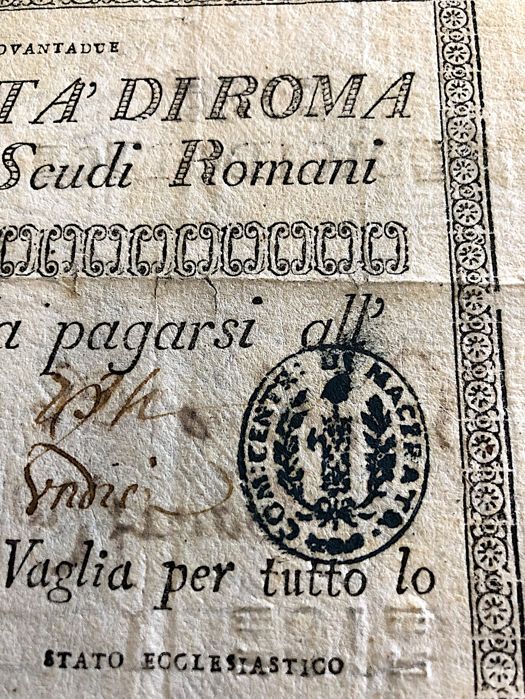 OVANTADUE
TA' DI ROMA
Scudi Romani
a pagarsi all'
COM: CENTR: DI MACERATO
Vndici
Vaglia per tutto lo
STATO ECCLESIASTICO